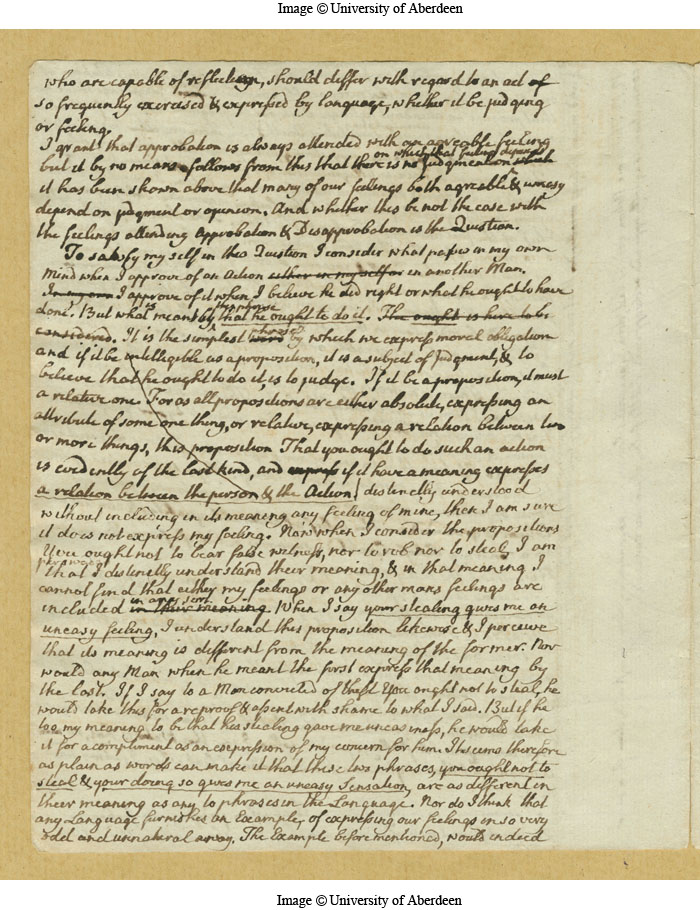 Image © University of Aberdeen
who are capable of reflection, should differ with regard to an act of
so frequently exercised & expressed by language, whether it be judging
or feeling.
I grant that approbation is always attended with an agreable feeling
on which that feeling depends
but it by no means follows from this that there is no judgment on which
it has been shown above that many of our feelings both agreable & uneasy
depend on judgment or opinion. And whether this be not the case with
the feelings attending Approbation & Disapprobation is the Question.
To satisfy my self in this Question I consider what passes in my own
mind when I approve of an Action either in myself or in another Man.
I approve of it when I believe he did right or what he ought to have
is this phrase
done. But what meant by that he ought to do it. The ought is here to be
phrase
considered. It is the simplest word by which we express moral obligation
and if it be intelligible as a proposition, it is a subject of Judgment, & to
believe that he ought to do it is to judge. If it be a proposition, it must
a relative one For as all propositions are either absolute, expressing an
attribute of some one thing, or relative, expressing a relation between two
or more things, this proposition That you ought to do such an action
is evidently of the last kind, and express if it have a meaning expresses
a relation between the person & the Action. distinctly understood
without including in its meaning any feeling of mine, then I am sure
it does not express my feeling. Now when I consider the propositions
You ought not to bear false witness, nor to rob nor to steal, I am
perswaded
that I distinctly understand their meaning, & in that meaning I
cannot find that either my feelings or any other mans feelings are
in any sort
included in their meaning. When I say your stealing gives me an
uneasy feeling, I understand this proposition likewise & I perceive
that its meaning is different from the meaning of the former. Nor
would any Man when he meant the first express that meaning by
the last. If I say to a Man convicted of theft You ought not to steal, he
would take this for a reproof & assent with shame to what I said. But if he
too my meaning to be that his stealing gave me uneasiness, he would take
it for a compliment as an expression of my concern for him. It seems therefore
as plain as words can make it that these two phrases, you ought not to
steal & your doing so gives me an uneasy Sensation, are as different in
their meaning as any to phrases in the Language. Nor do I think that
any Language furnishes an Example, of expressing our feelings in so very
odd and unnatural a way. The Example before mentioned, would indeed
Image © University of Aberdeen